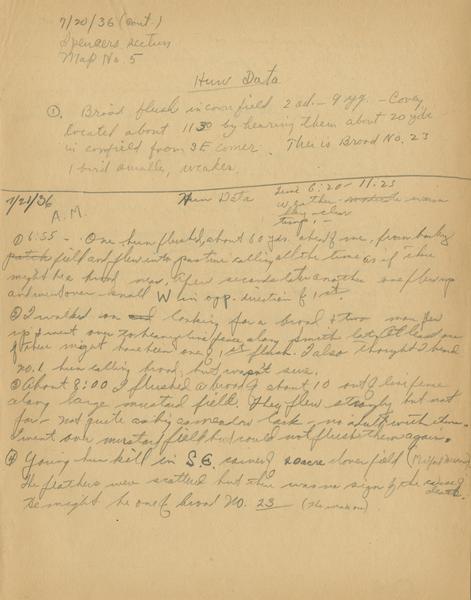 7/20/36 (cont.)
Spencers section
Map No. 5
Hun Data
①. Brood flush in cornfield 2 ad. - 9 yg. - Covey
located about 11 30 by hearing them about 20 yds.
in cornfield from SE corner. This is Brood No. 23
1 bird smaller, weaker.
7/21/36 Hun Data Time 6:20 - 11:23
A.M. weather - warm
sky - clear
temp. -
① 6:55 - One hun flushed, about 60 yds. ahead of me, from barley
field and flew into pasture calling all the time as if she
might have a brood near. A few seconds later another one flew up
and went over small W in opp. direction of 1st.
② I walked on looking for a brood & two more flew
up & went over to line fence along Smith late. At least one
of these might have been one of 1st flush. I also thought I heard
No. 1 hun calling brood, but wasn't sure.
③ About 8:00 I flushed a brood of about 10 out of line fence
along large mustard field. They flew strongly but not
far - not quite as big as meadow lark - no adult with them.
I went over mustard field but could not flush them again.
④ Young hun kill in SE corner of 20 acre clover field
The feathers were scattered but there was no sign of the cause of
death.
It might be one of brood No. 23